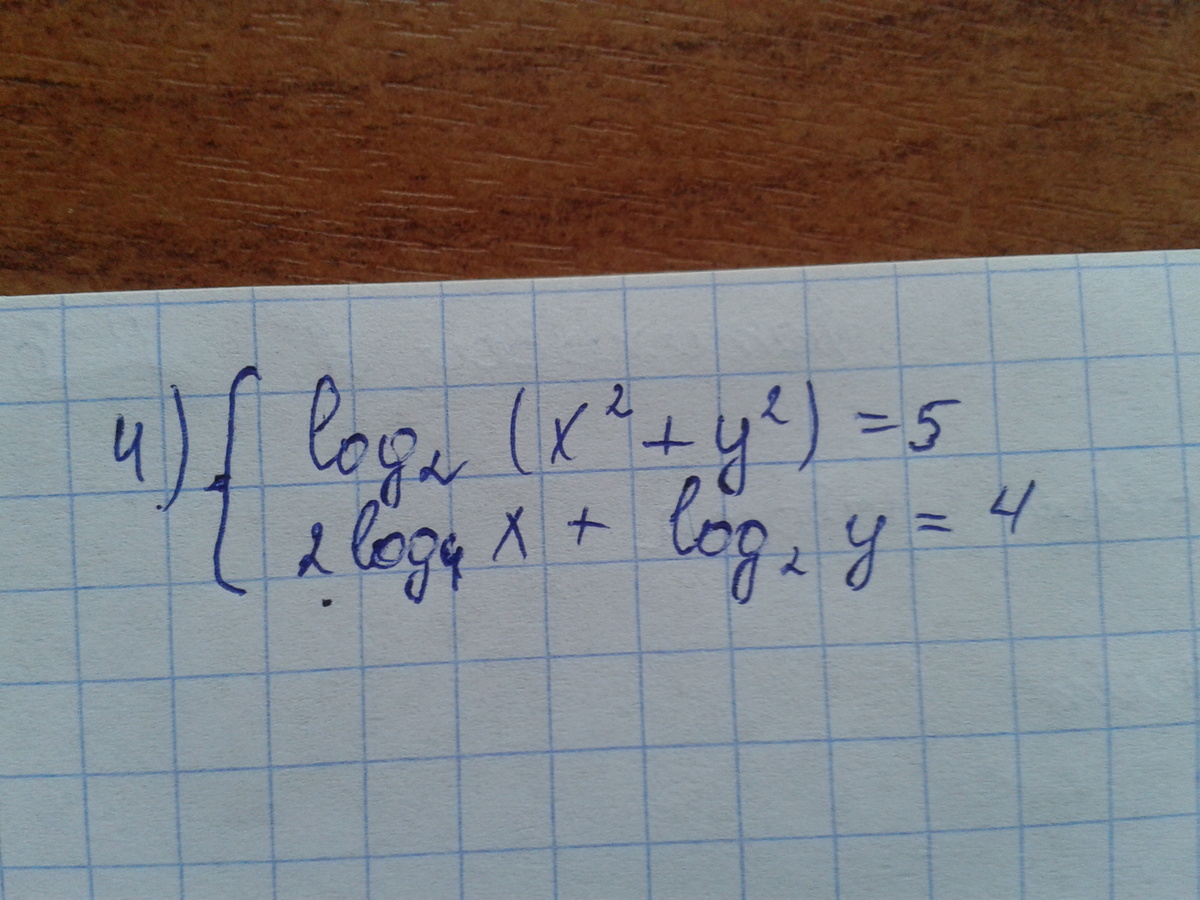 4) { log₂ (x² + y²) = 5
2 log₄ x + log₂ y = 4